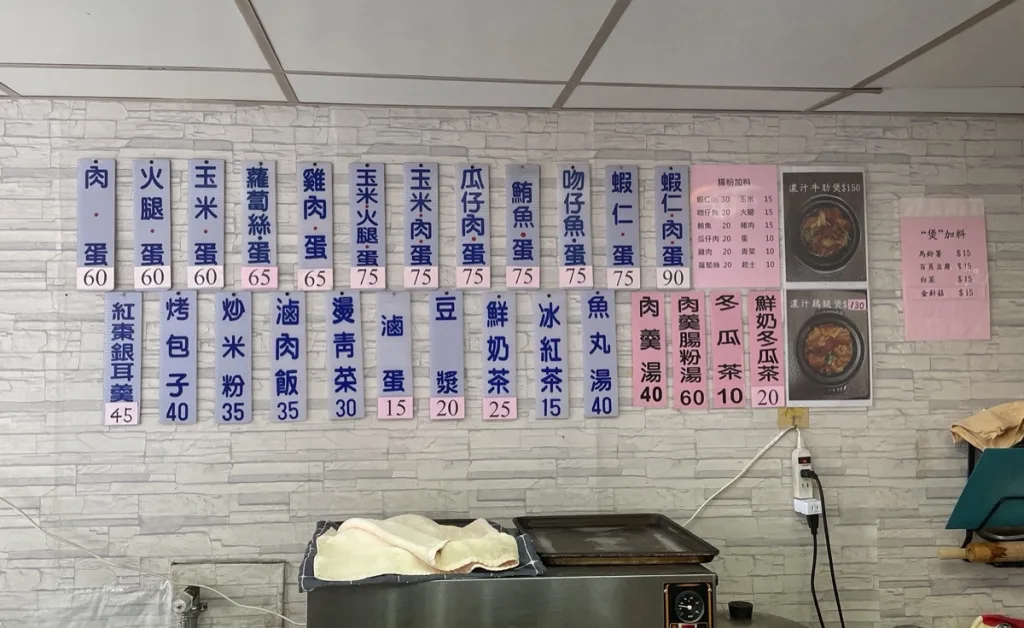 肉·蛋 60
火腿·蛋 60
玉米·蛋 60
蘿蔔絲蛋 65
雞肉·蛋 65
玉米·火腿·蛋 75
玉米·肉·蛋 75
瓜仔肉·蛋 75
鮪魚·蛋 75
吻仔魚·蛋 75
蝦仁·蛋 75
蝦仁·肉蛋 90
腸粉加料
蝦仁 30 玉米 15
吻仔魚 20 火腿 15
鮪魚 20 豬肉 15
瓜仔肉 20 蛋 10
雞肉 20 青菜 10
蘿蔔絲 20 起士 10
濃汁牛肋煲$150
濃汁鷄腿煲$130
“煲”加料
馬鈴薯 $15
百頁豆腐 $15
白菜 $15
金針菇 $15
紅棗銀耳羹 45
烤包子 40
炒米粉 35
滷肉飯 35
燙青菜 30
滷蛋 15
豆漿 20
鮮奶茶 25
冰紅茶 15
魚丸湯 40
肉羹湯 40
肉羹腸粉湯 60
冬瓜茶 10
鮮奶冬瓜茶 20